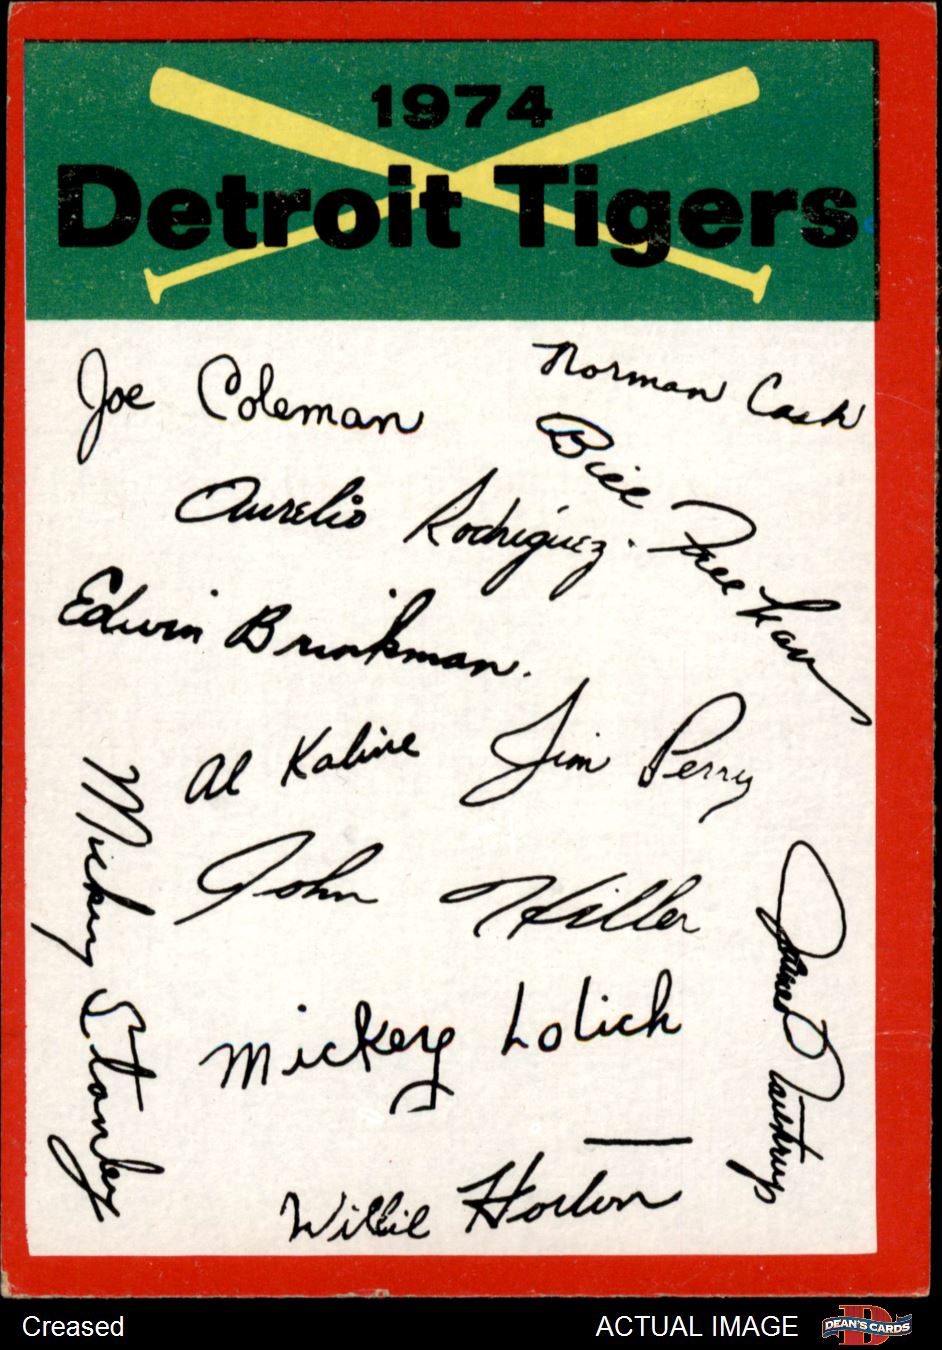 1974
Detroit Tigers
Joe Coleman
Norman Cash
Bill Freehan
Aurelio Rodriguez.
Edwin Brinkman.
Al Kaline
Jim Perry
Mickey Stanley
John Hiller
James Northrup
Mickey Lolich
Willie Horton
Creased
ACTUAL IMAGE
DEAN'S CARDS